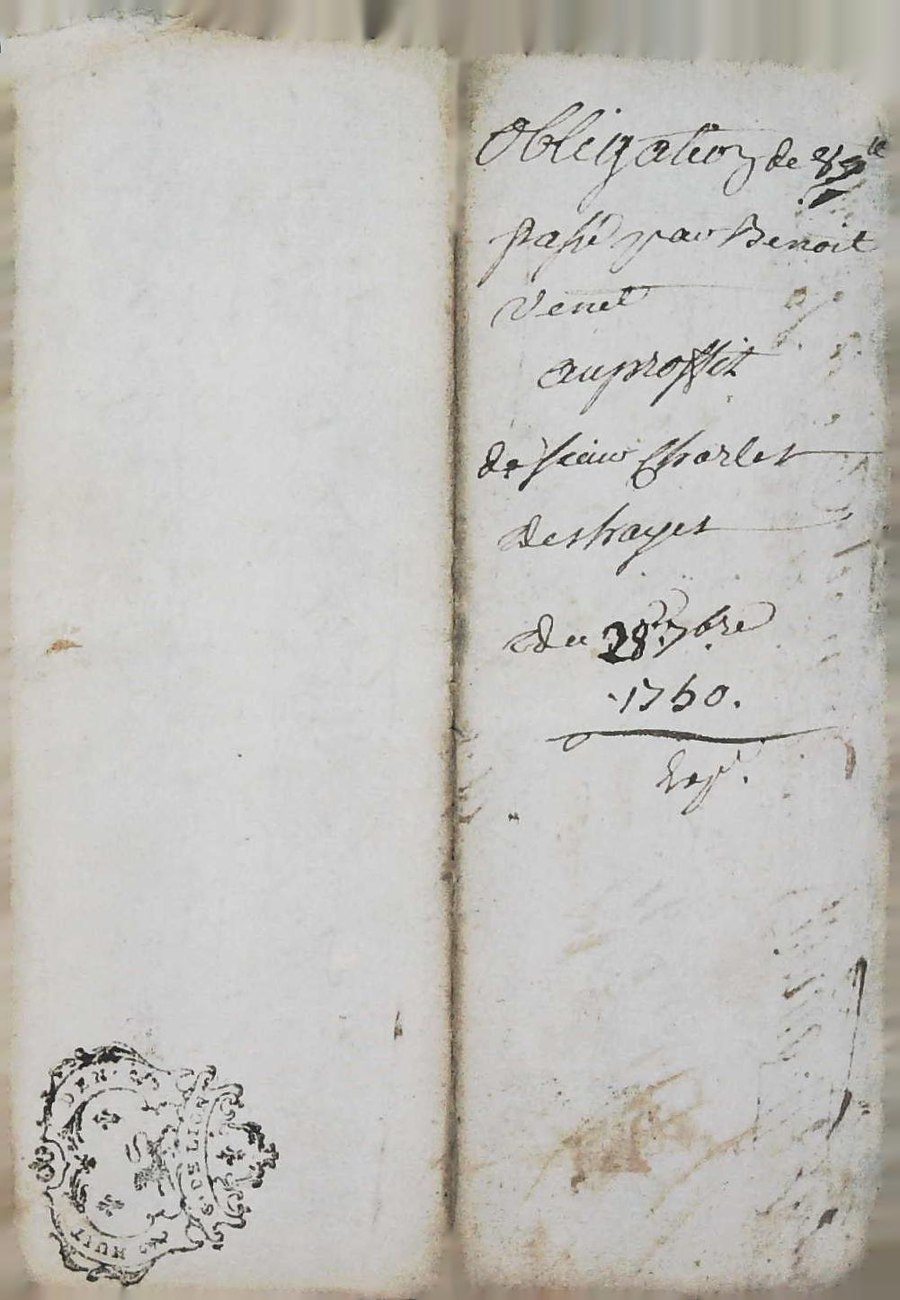 Obligation de 89ᵗᵗ
passé par Benoit
Venet
au proffit
de sieur Charles
deshayes
du 28e. 7bre
1750.
Exp.
HUIT DENIERS
G. DE LION